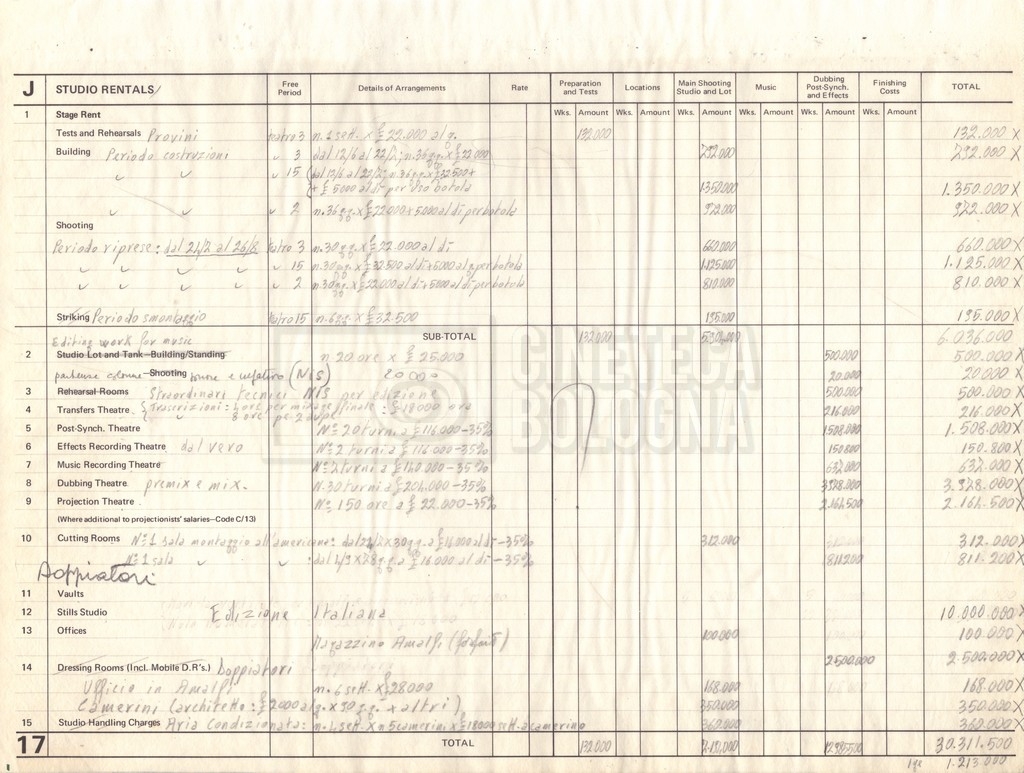 J STUDIO RENTALS Free Period Details of Arrangements Rate Preparation and Tests Locations Main Shooting Studio and Lot Music Dubbing Post-Synch. and Effects Finishing Costs TOTAL
1 Stage Rent Wks. Amount Wks. Amount Wks. Amount Wks. Amount Wks. Amount Wks. Amount
Tests and Rehearsals Provini teatro 3 n. 1 sett. x £ 22.000 al g. 132.000 132.000 X
Building Periodo costruzioni " 3 dal 12/6 al 22/7: n. 36 gg. x £ 22.000 792.000 X
" " " 15 + £ 5000 al dì per uso botola 1350.000 1.350.000 X
" " " 2 n. 36 gg. x £ 22.000 + 5000 al dì per botola 972.000 X
Shooting
Periodo riprese: teatro 3 n. 30 gg. x £ 22.000 al dì 660.000 660.000 X
" " " " 15 n. 30 gg. x £ 32.500 al dì + 5000 al g. per botola 1.125.000 1.125.000 X
" " " " 2 n. 30 gg. x £ 22.000 al dì + 5000 al dì per botola 810.000 810.000 X
Striking Periodo smontaggio teatro 15 n. 6 gg. x £ 32.500 195.000 195.000 X
SUB-TOTAL 132.000 6.036.000
Editing work for music
2 Studio Lot and Tank—Building/Standing n. 20 ore x £ 25.000 500.000 500.000 X
colonne Shooting (N/S) 20.000 20.000 X
3 Rehearsal Rooms Straordinari tecnici N/S per edizione 500.000 500.000 X
4 Transfers Theatre Trascrizioni: £ 18000 ora 216.000 216.000 X
5 Post-Synch. Theatre N° 20 turni a £ 116.000 - 35% 1508.000 1.508.000 X
6 Effects Recording Theatre dal vero N° 2 turni a £ 116.000 - 35% 150.800 150.800 X
7 Music Recording Theatre N° 2 turni a - 35% 632.000 632.000 X
8 Dubbing Theatre premix e mix. N. 30 turni a £ 204.000 - 35% 3.978.000 X
9 Projection Theatre N° 150 ore a £ 22.000 - 35% 2.164.500 2.164.500 X
(Where additional to projectionists' salaries—Code C/13)
10 Cutting Rooms N° 1 sala montaggio all'americana: dal x 30 gg. a £ 16.000 al dì - 35% 312.000 312.000 X
N° 1 sala " " : dal 1/9 x 78 gg. a £ 16.000 al dì - 35% 811.200 811.200 X
Doppiatori
11 Vaults
12 Stills Studio Edizione Italiana 10.000.000 X
13 Offices Magazzino Amalfi (forfait) 100.000 100.000 X
14 Dressing Rooms (Incl. Mobile D.R's.) Doppiatori 2.500.000 2.500.000 X
Ufficio in Amalfi n. 6 sett. x £ 28000 168.000 168.000 X
Camerini (architetto: £ 2000 al g. x 30 gg. + altri) 350.000 350.000 X
15 Studio Handling Charges Aria Condizionata: n. 4 sett. x n. 5 camerini x £ 18000 sett. a camerino 360.000 360.000 X
17 TOTAL 132.000 30.311.500
ige 1.213.000
CINETECA
BOLOGNA